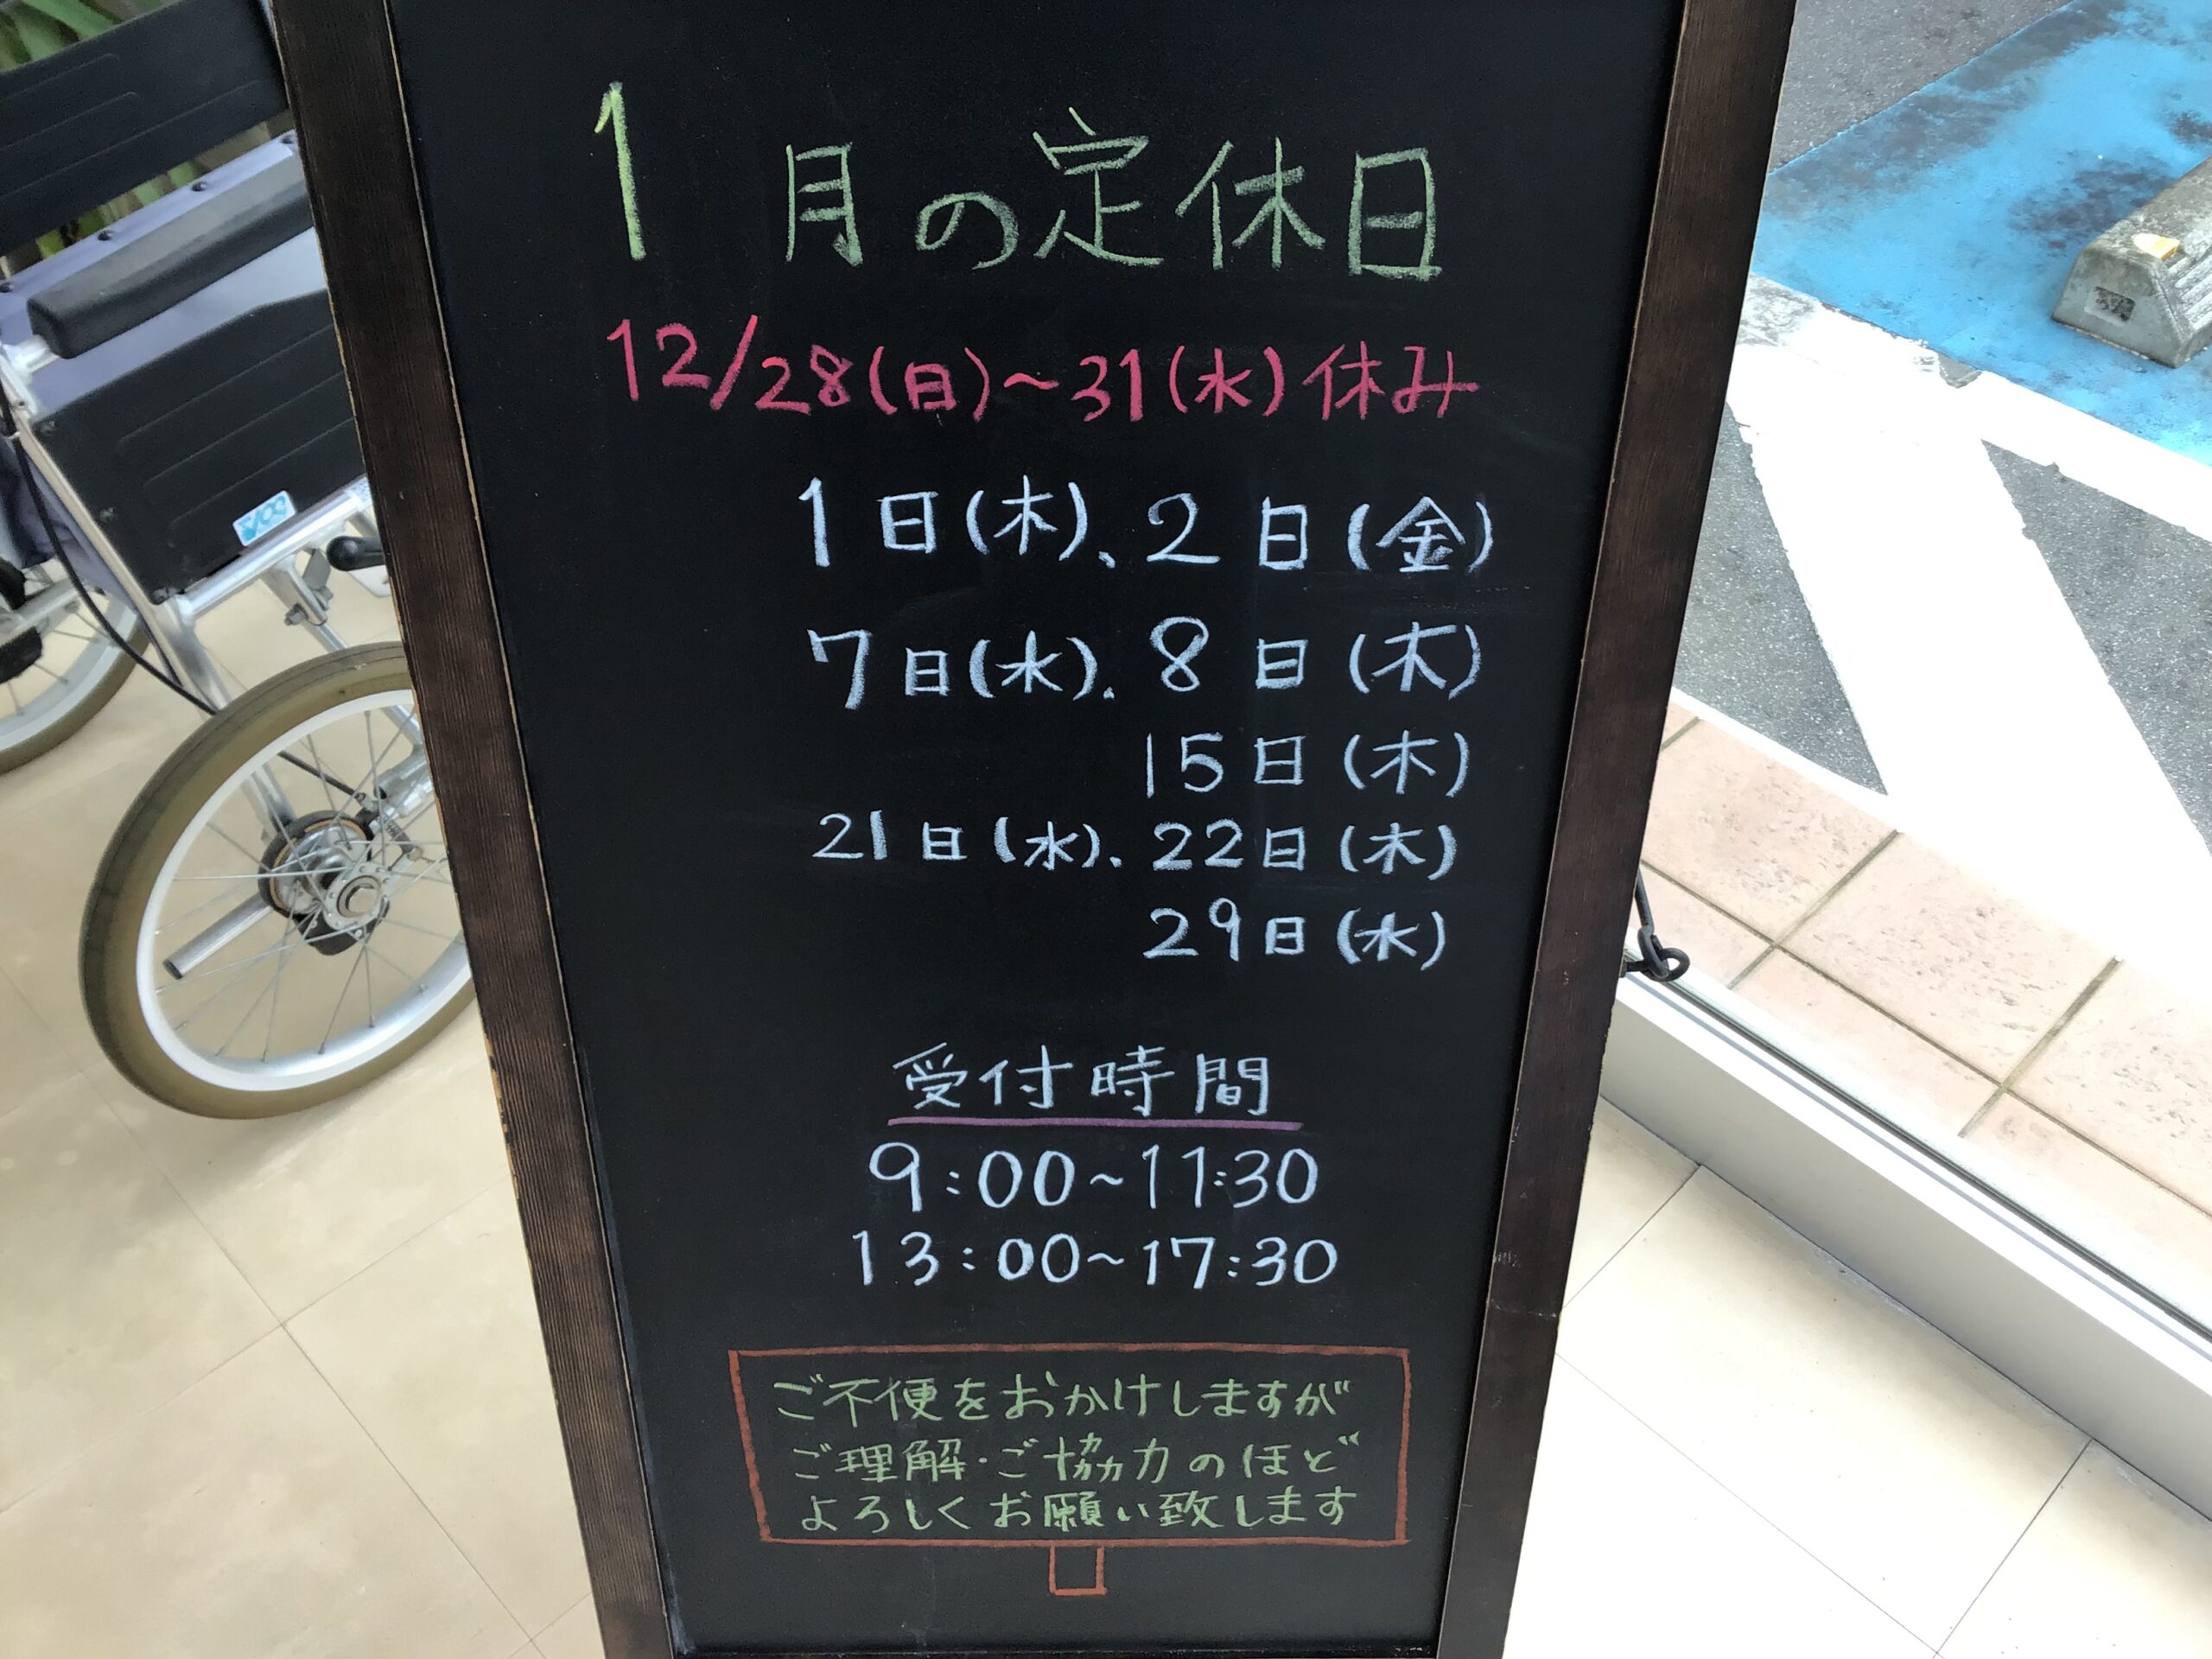 1月の定休日
12/28(日)~31(水)休み
1日(木)、2日(金)
7日(水).8日(木)
15日(木)
21日(水).22日(木)
29日(水)
受付時間
9:00~11:30
13:00~17:30
ご不便をおかけしますが
ご理解・ご協力のほど
よろしくお願い致します